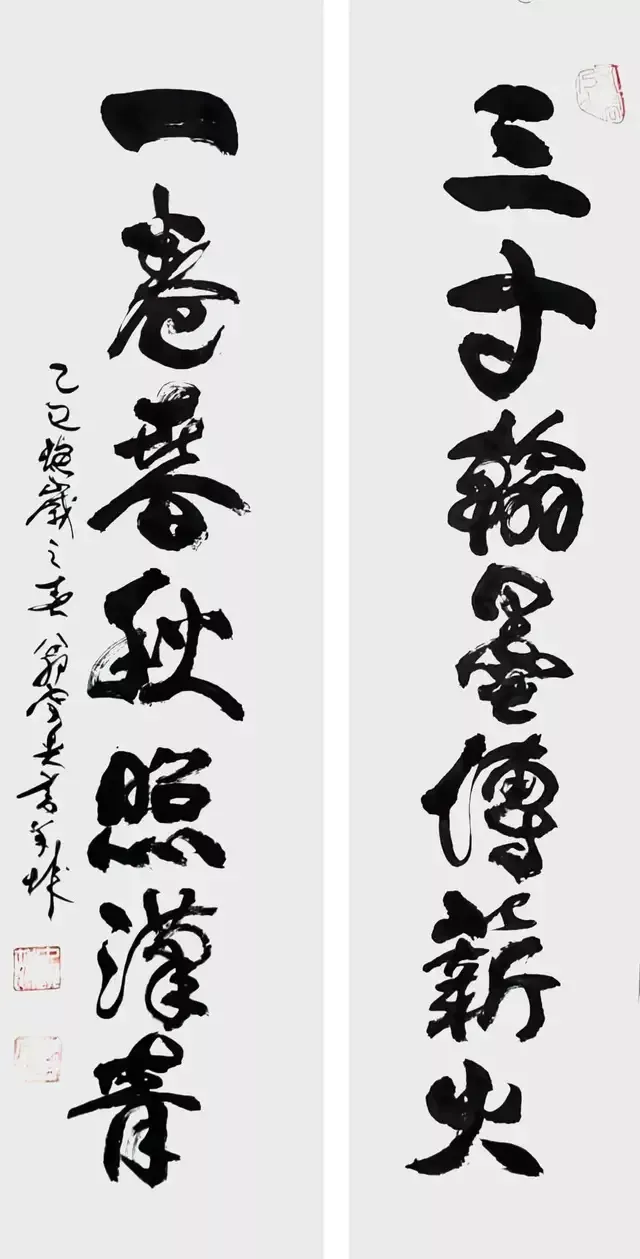 三寸翰墨傳薪火
一卷春秋照漢青
乙巳歲之春